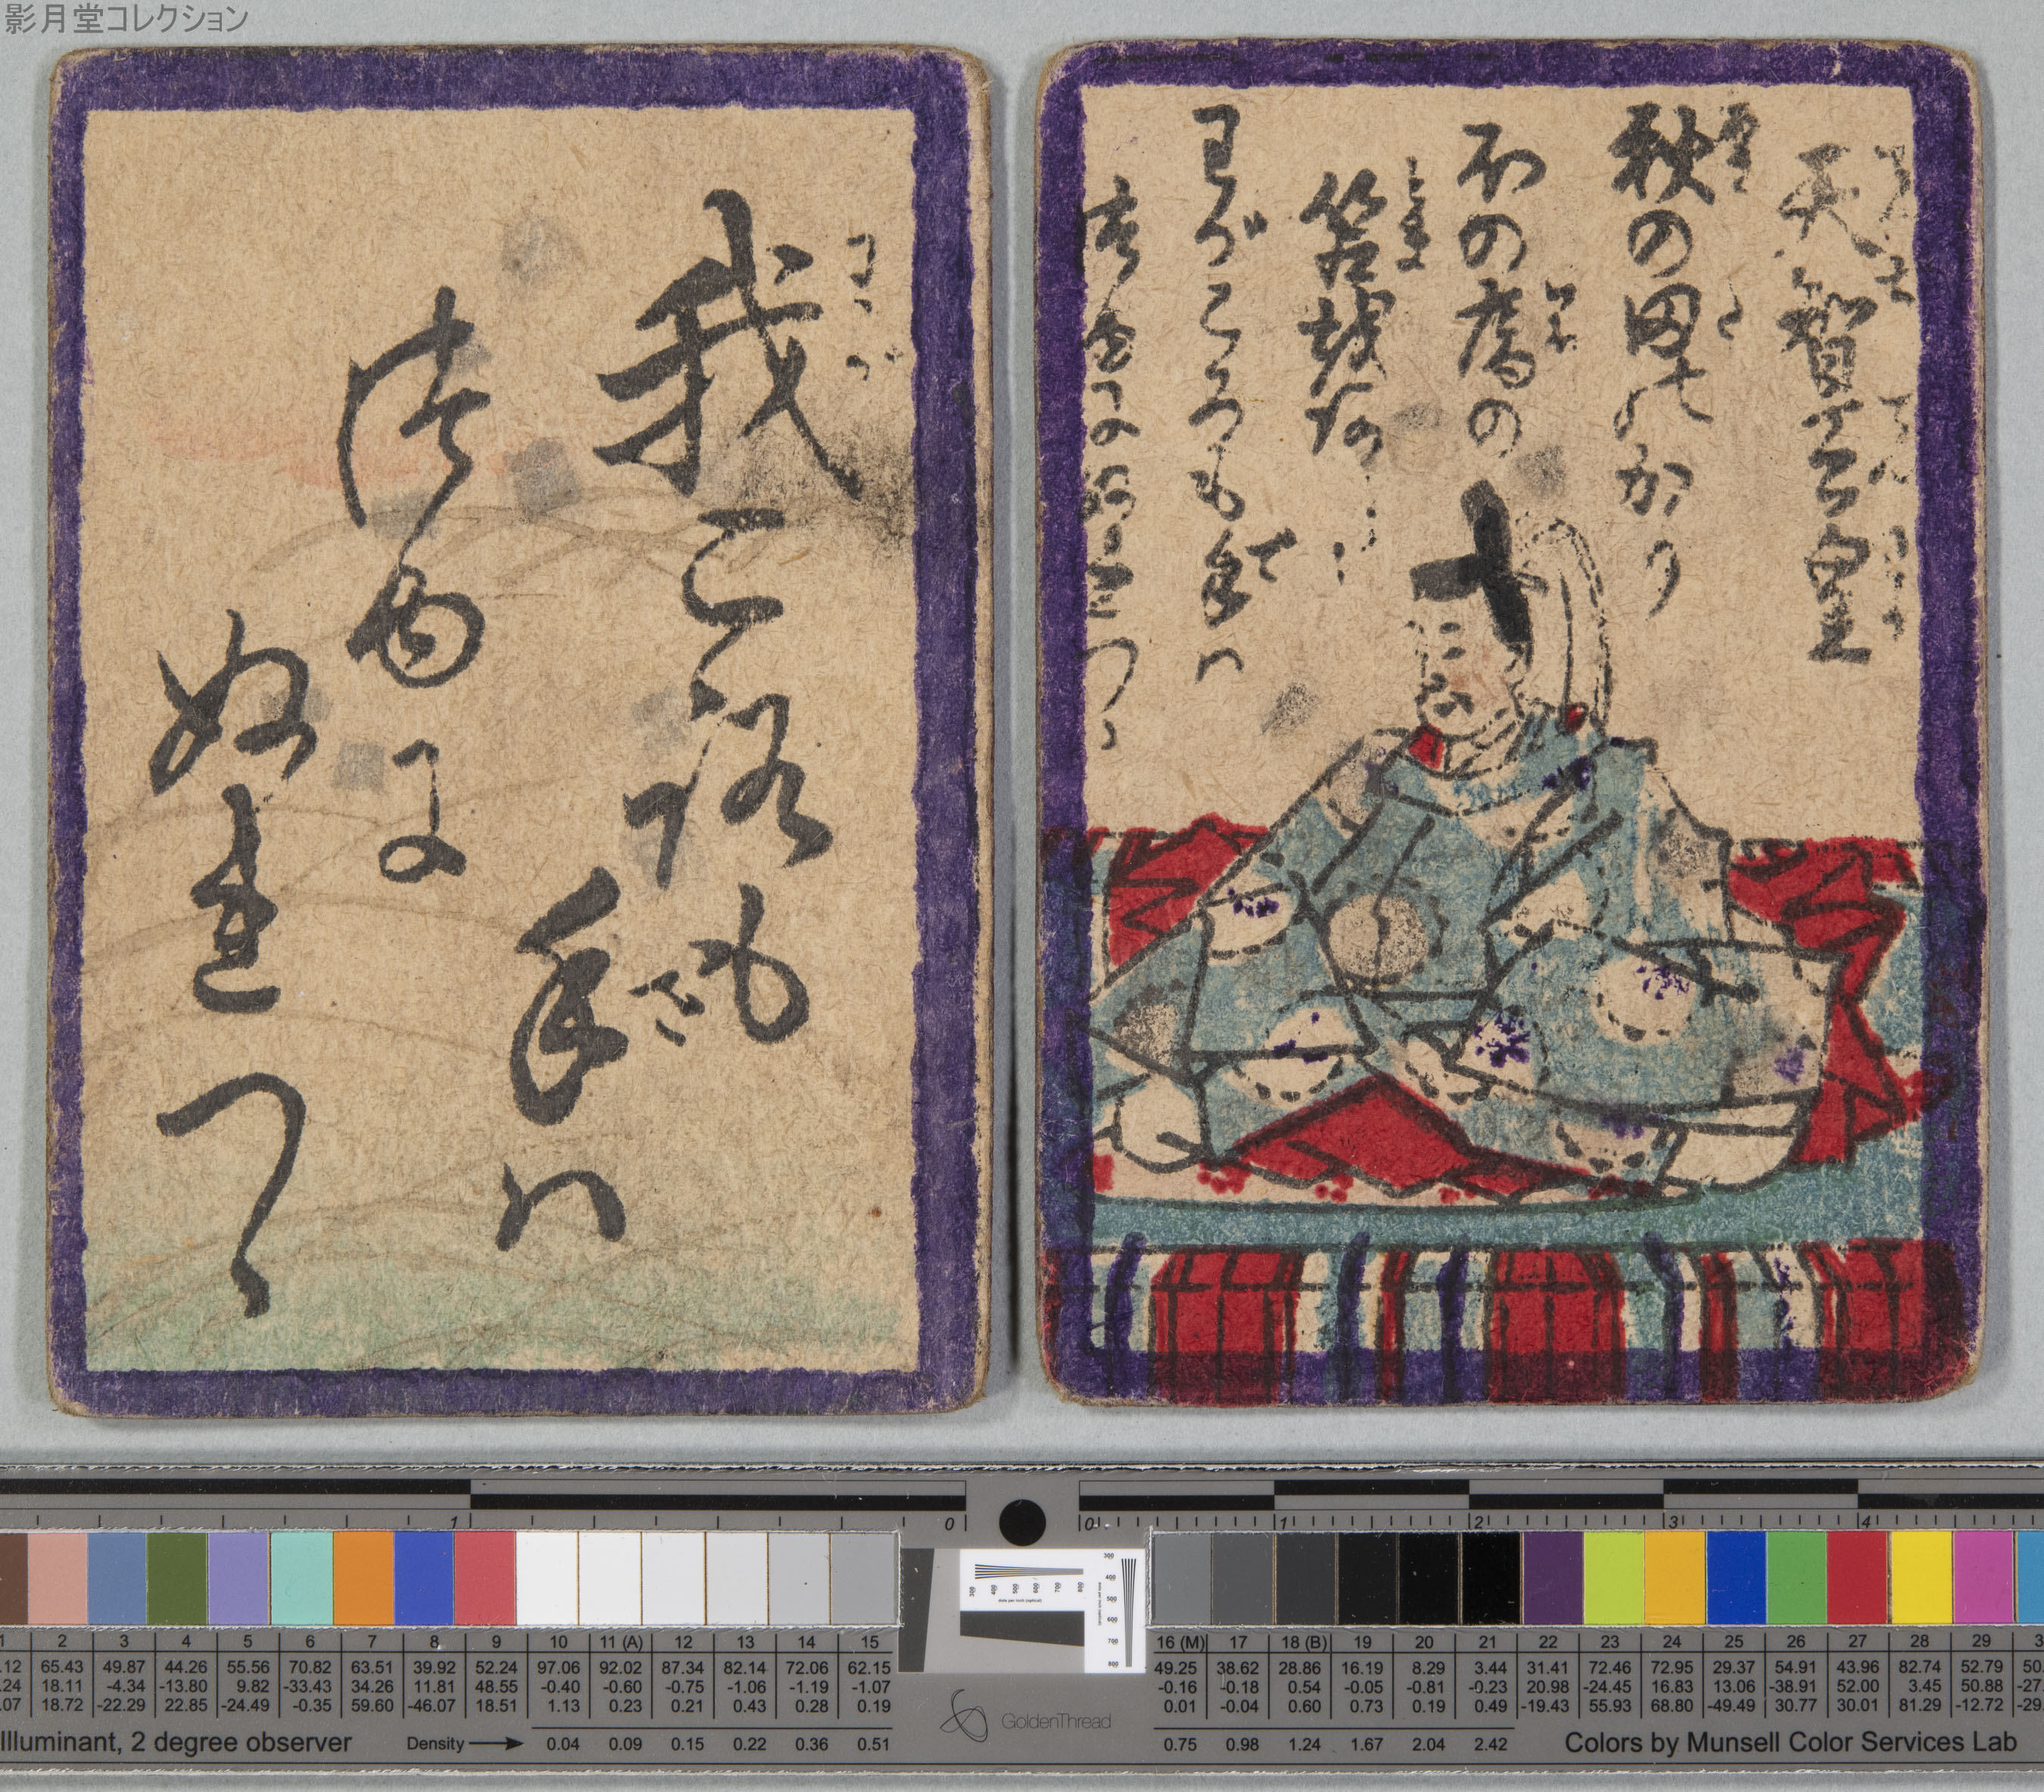 影月堂コレクション
天智天皇
秋の田のかり
ほの庵の
とま
苫越あらみ
わがころも手ハ
て
露にぬれつゝ
わが
我ころも
手ハ
つゆに
ぬれ
つゝ
1 0 0 1 2 3 4
300 400 500 600 700 800
dots per inch (optical)
300 400 500 600 700 800
2 3 4 5 6 7 8 9 10 11 (A) 12 13 14 15
65.43 49.87 44.26 55.56 70.82 63.51 39.92 52.24 97.06 92.02 87.34 82.14 72.06 62.15
18.11 -4.34 -13.80 9.82 -33.43 34.26 11.81 48.55 -0.40 -0.60 -0.75 -1.06 -1.19 -1.07
18.72 -22.29 22.85 -24.49 -0.35 59.60 -46.07 18.51 1.13 0.23 0.21 0.43 0.28 0.19
Illuminant, 2 degree observer Density 0.04 0.09 0.15 0.22 0.36 0.51
GoldenThread
16 (M) 17 18 (B) 19 20 21 22 23 24 25 26 27 28 29
49.25 38.62 28.86 16.19 8.29 3.44 31.41 72.46 72.95 29.37 54.91 43.96 82.74 52.79
-0.16 -0.18 0.54 -0.05 -0.81 -0.23 20.98 -24.45 16.83 13.06 -38.91 52.00 3.45 50.88
0.01 -0.04 0.60 0.73 0.19 0.49 -19.43 55.93 68.80 -49.49 30.77 30.01 81.29 -12.72
0.75 0.98 1.24 1.67 2.04 2.42 Colors by Munsell Color Services Lab